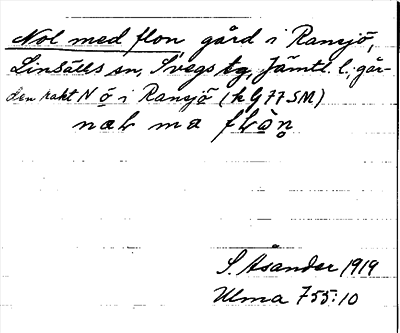 Nol med flon, gård i Ransjö,
Linsälls sn, Svegs tg, Jämtl. l., går-
den rakt N ö i Ransjö (k G 77 SM)
naL ma fLo̱n̥
S. Åsander 1919
Ulma 755:10